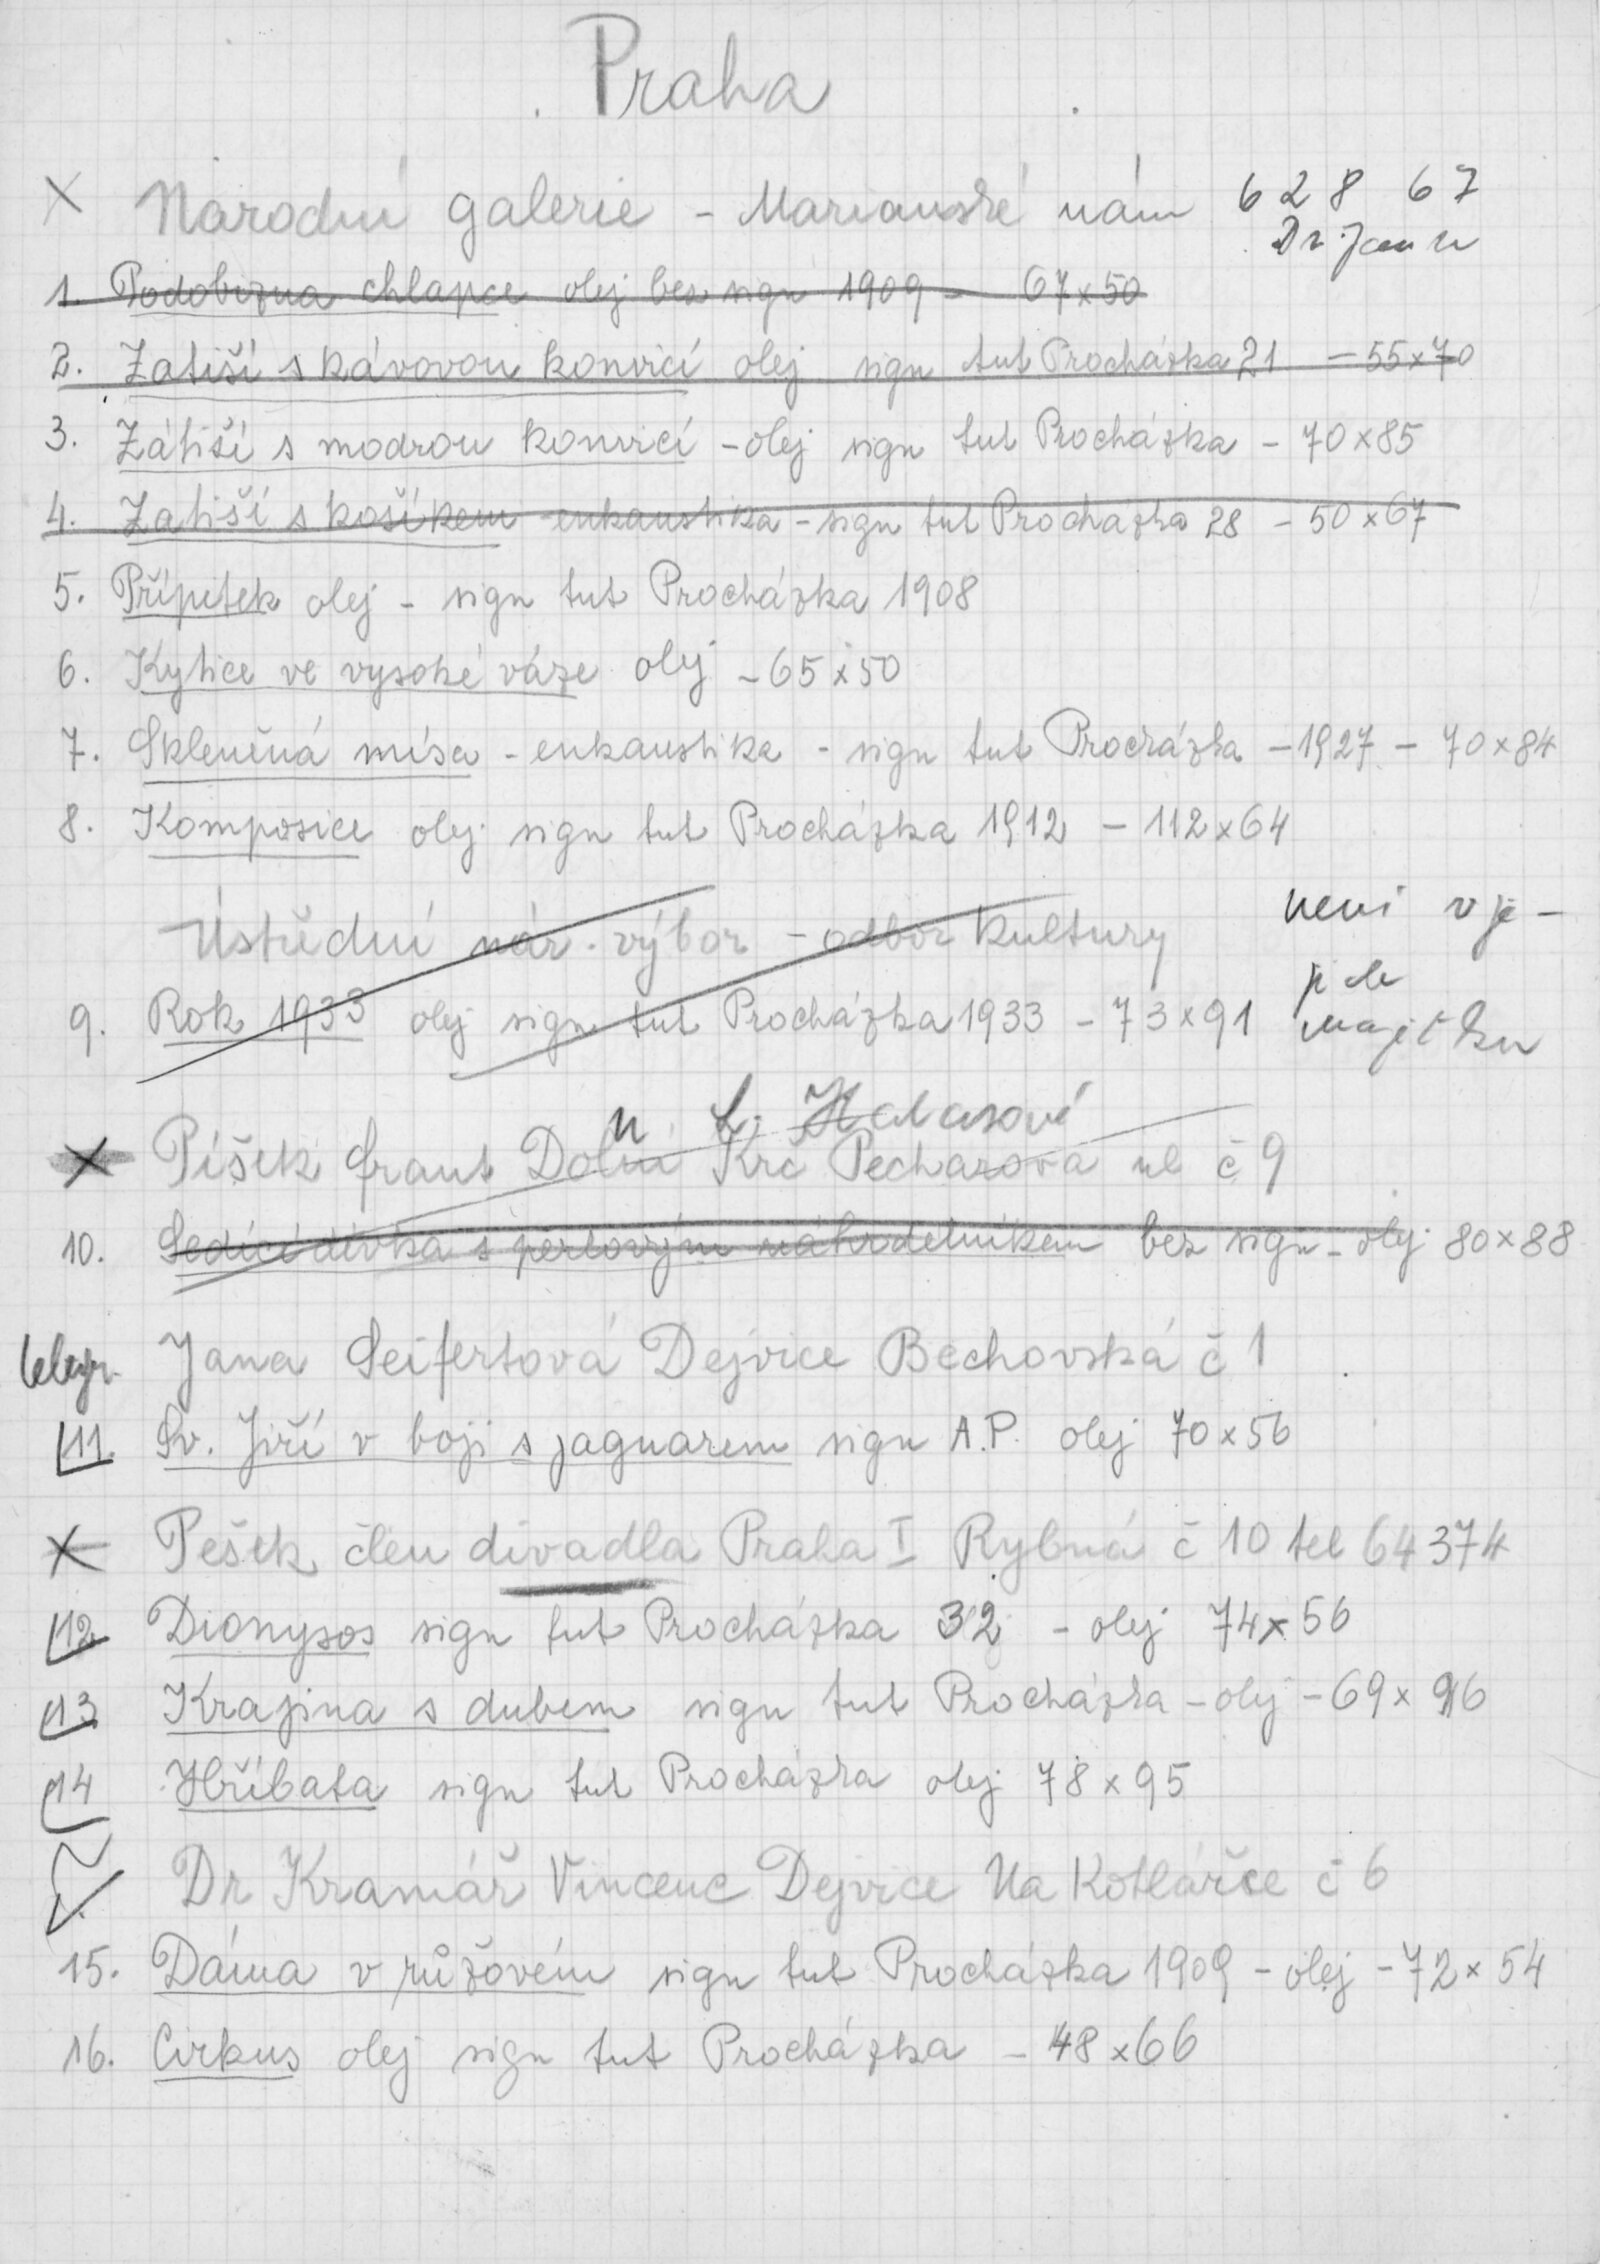 Praha
× Národní galerie - Marianské nám 628 67
Dr.
1. Podobizna chlapce olej bez sign 1909 - 67×50
2. Zatiší s kávovou konvicí olej sign tut Procházka 21 - 55×70
3. Zátiší s modrou konvicí - olej sign tut Procházka - 70×85
4. Zatiší s košíkem - enkaustika - sign tut Procházka 28 - 50×67
5. Přípitek olej - sign tut Procházka 1908
6. Kytice ve vysoké váze olej - 65×50
7. Skleněná mísa - enkaustika - sign tut Procházka - 1927 - 70×84
8. Komposice olej sign tut Procházka 1912 - 112×64
Ústřední nár. výbor - odbor kultury
není v je-
jich
majetku
9. Rok 1933 olej sign tut Procházka 1933 - 73×91
u Halasové
× Píšek Frant Dolní Krč Pecharová ul č 9
10. Sedící dívka s perlovým náhrdelníkem bez sign - olej 80×88
telegr. Jana Seifertová Dejvice Bechovská č 1
11. Sv. Jiří v boji s jaguarem sign A.P. olej 70×56
× Pešek člen divadla Praha I Rybná č 10 tel 64374
12. Dionysos sign tut Procházka 32 - olej 74×56
13 Krajina s dubem sign tut Procházka - olej - 69×96
14 Hříbata sign tut Procházka olej 78×95
Dr Kramář Vincenc Dejvice Na Kotlářce č 6
15. Dáma v růžovém sign tut Procházka 1909 - olej - 72×54
16. Cirkus olej sign tut Procházka - 48×66